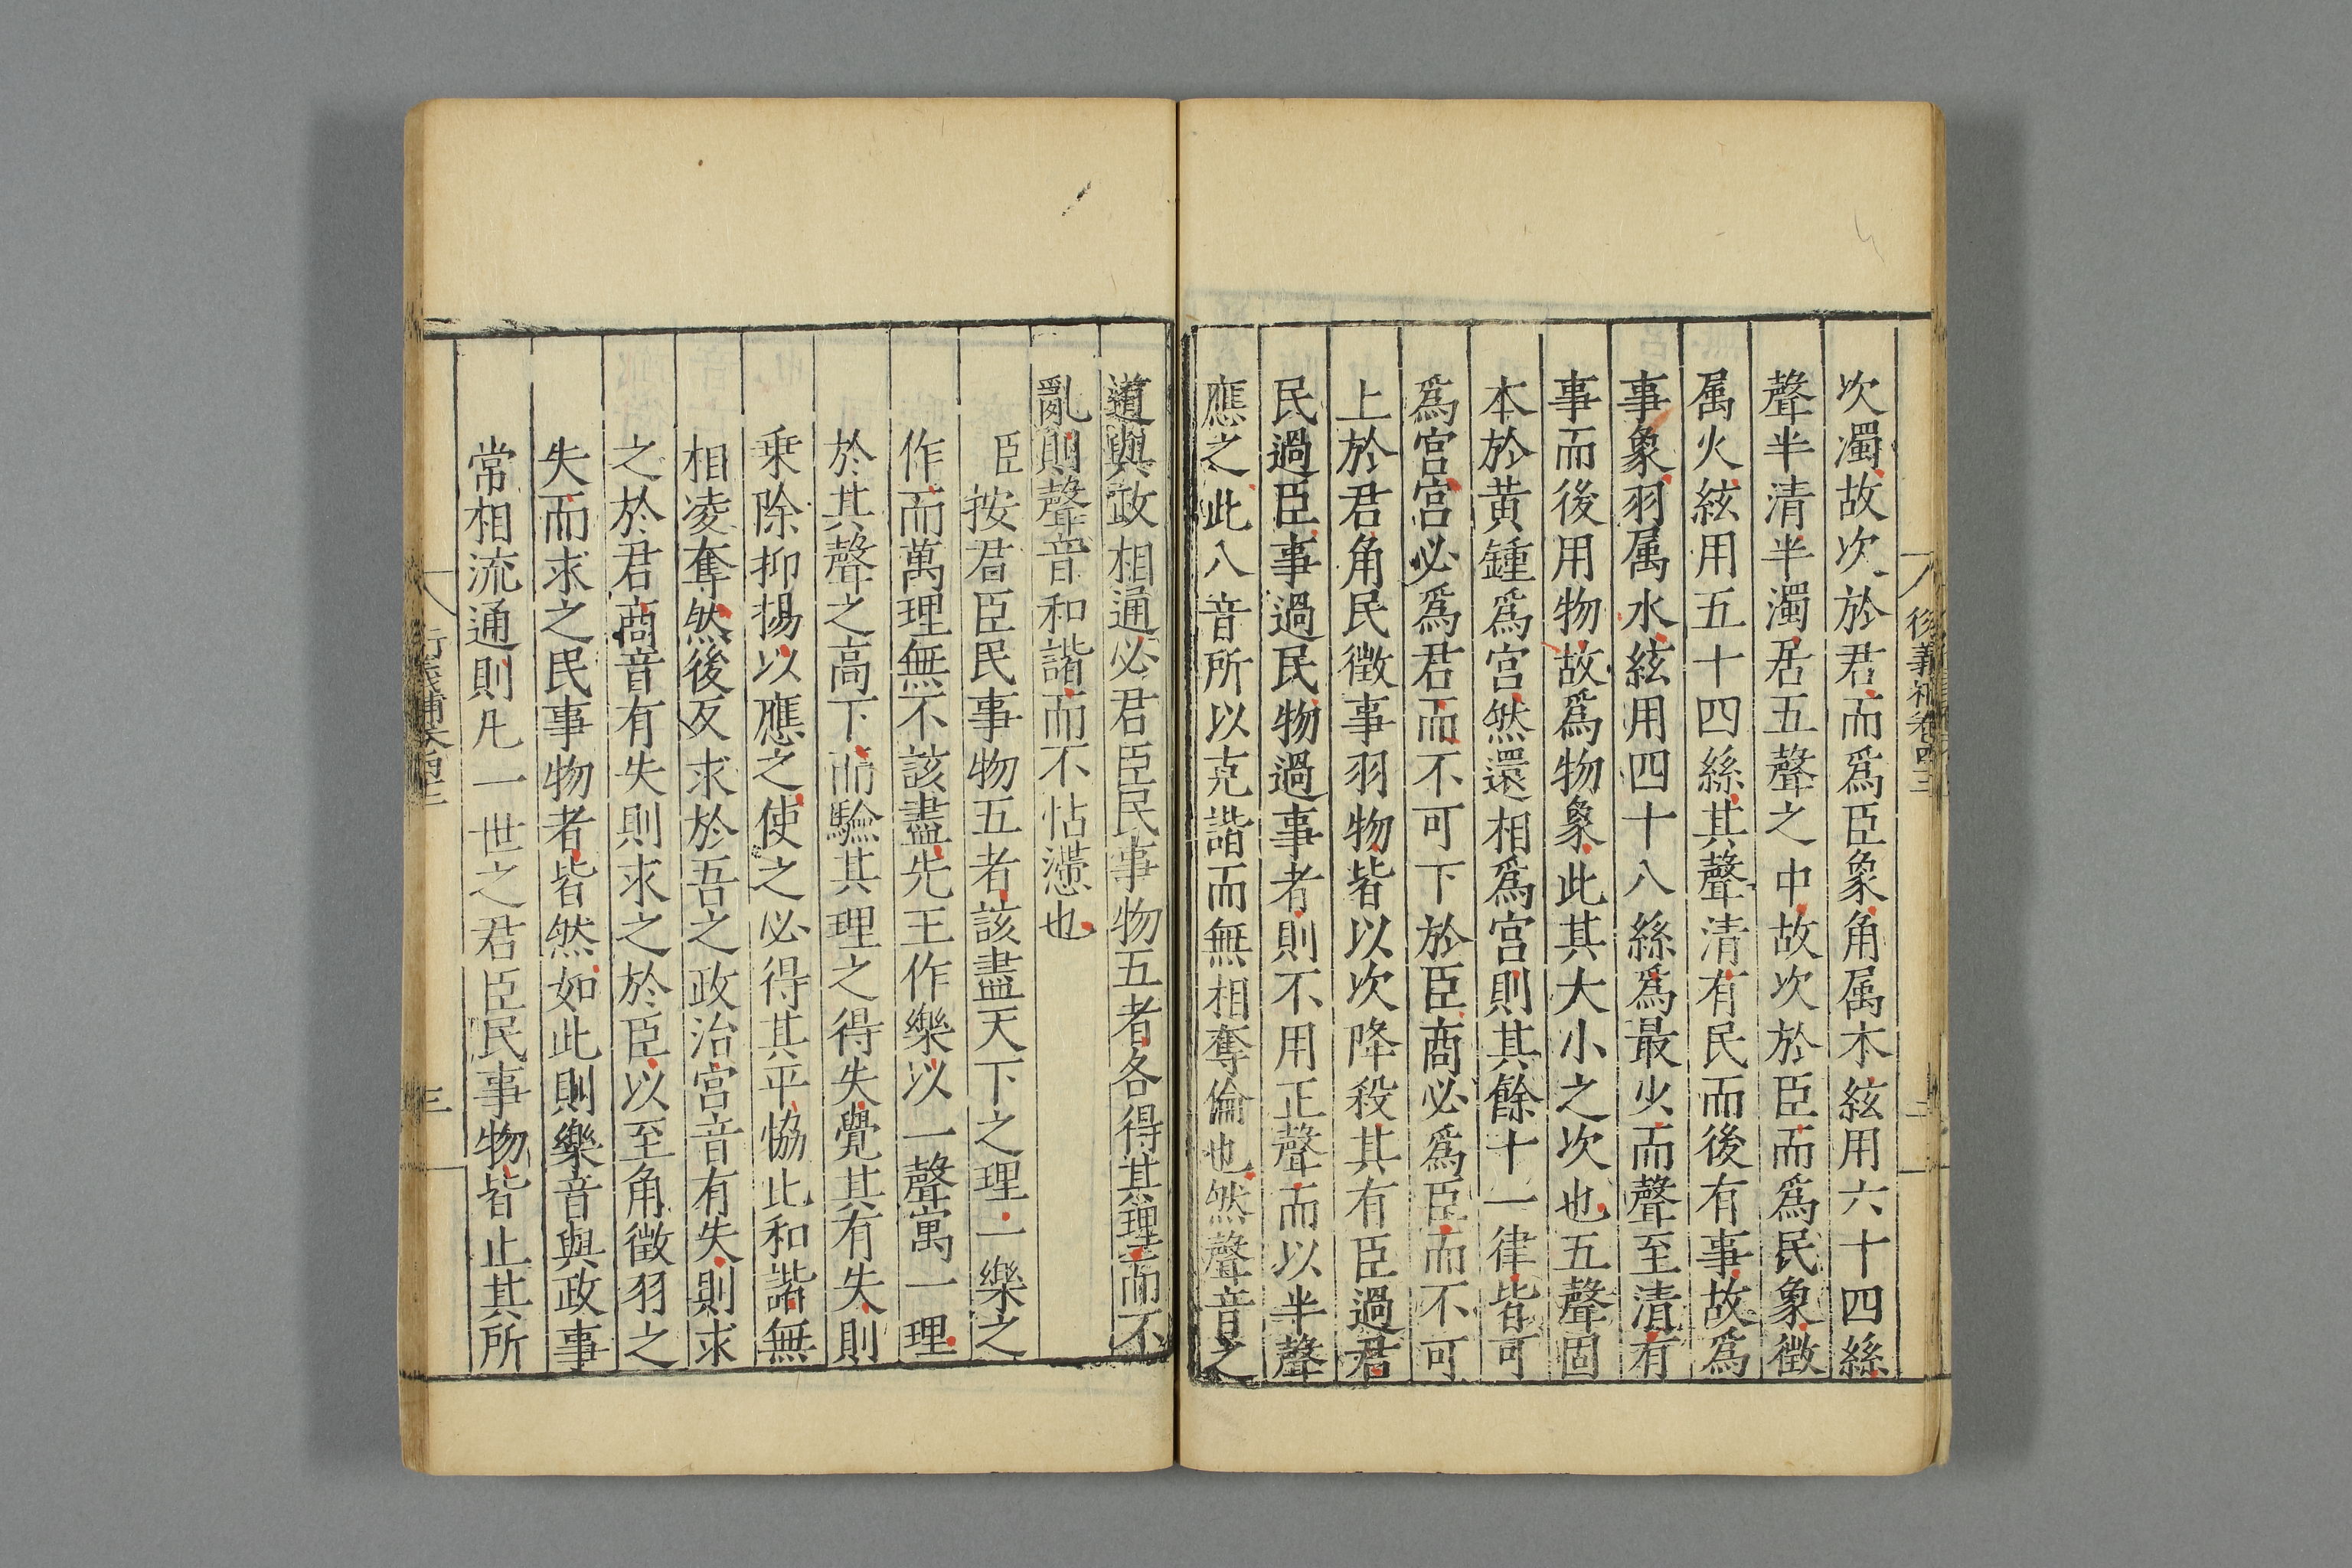 次濁故次於君而爲臣象角属木絃用六十四絲
聲半清半濁居五聲之中故次於臣而爲民象徵
属火絃用五十四絲其聲清有民而後有事故爲
事象羽属水絃用四十八絲爲最少而聲至清有
事而後用物故爲物象此其大小之次也五聲固
本於黄鍾爲宮然還相爲宮則其餘十一律皆可
爲宮宮必爲君而不可下於臣商必爲臣而不可
上於君角民徵事羽物皆以次降殺其有臣過君
民過臣事過民物過事者則不用正聲而以半聲
應之此八音所以克諧而無相奪倫也然聲音之
道與政相通必君臣民事物五者各得其理而不
亂則聲音和諧而不怗懘也
臣按君臣民事物五者該盡天下之理一樂之
作而萬理無不該盡先王作樂以一聲寓一理
於其聲之高下而驗其理之得失覺其有失則
乗除抑揚以應之使之必得其平恊此和諧無
相凌奪然後反求於吾之政治宮音有失則求
之於君商音有失則求之於臣以至角徵羽之
失而求之民事物者皆然如此則樂音與政事
常相流通則凡一世之君臣民事物皆止其所
三